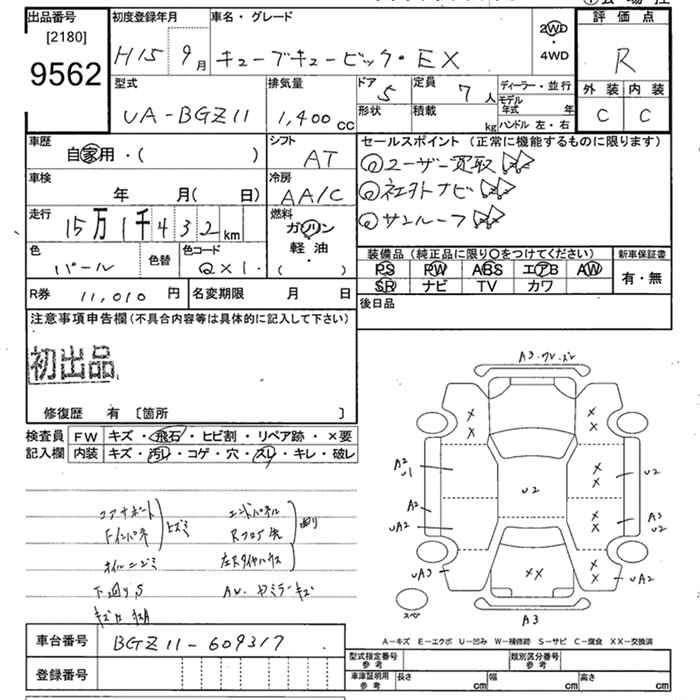 出品番号
[2180]
9562
初度登録年月
H15 9月
車名・グレード
キューブキュービック・EX
2WD
・
4WD
評価点
R
型式
UA-BGZ11
排気量
1,400 CC
ドア
5
形状
定員
7人
積載
kg
ディーラー・並行
モデル年式 年
ハンドル 左・右
外装 内装
C C
車歴
自家用・( )
シフト
AT
車検
年 月( 日)
冷房
AA/C
走行
15万1千432km
燃料
ガソリン
軽油
・
( )
色
パール
色替
色コード
QX1
セールスポイント(正常に機能するものに限ります)
◎ユーザー買取
◎社外ナビ
◎サンルーフ
装備品(純正品に限り○をつけてください)
PS PW ABS エアB AW
SR ナビ TV カワ
新車保証書
有・無
R券 11,010円
名変期限 月 日
後日品
注意事項申告欄(不具合内容等は具体的に記入して下さい)
初出品
修復歴 有 〔箇所 〕
検査員記入欄
FW キズ・飛石・ヒビ割・リペア跡・×要
内装 キズ・汚れ・コゲ・穴・スレ・キレ・破レ
コアサポート
Fインパネ
ヒズミ
エンドパネル
Rフロア先
曲り
オイルニジミ
左右タイヤハウス
下廻りS
AW.
キズ
A3
A2
U1
A2
UA2
UA3
U2
U2
A3
U2
UA2
A3
スペア
A-キズ E-エクボ U-凹み W-補修跡 S-サビ C-腐食 XX-交換済
車台番号
BGZ11-609317
登録番号
型式指定番号
参考
類別区分番号
参考
車庫証明用
参考
長さ cm
幅 cm
高さ cm